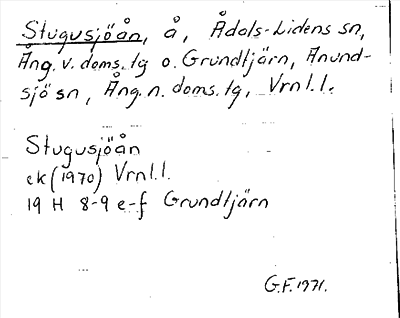 Stugusjöån, å, Ådals-Lidens sn,
Ång. v. doms. tg o. Grundtjärn, Anund-
sjö sn, Ång. n. doms. tg, Vrnl. l.
Stugusjöån
ek (1970) Vrnl. l.
19 H 8-9 e-f Grundtjärn
G.F. 1971.